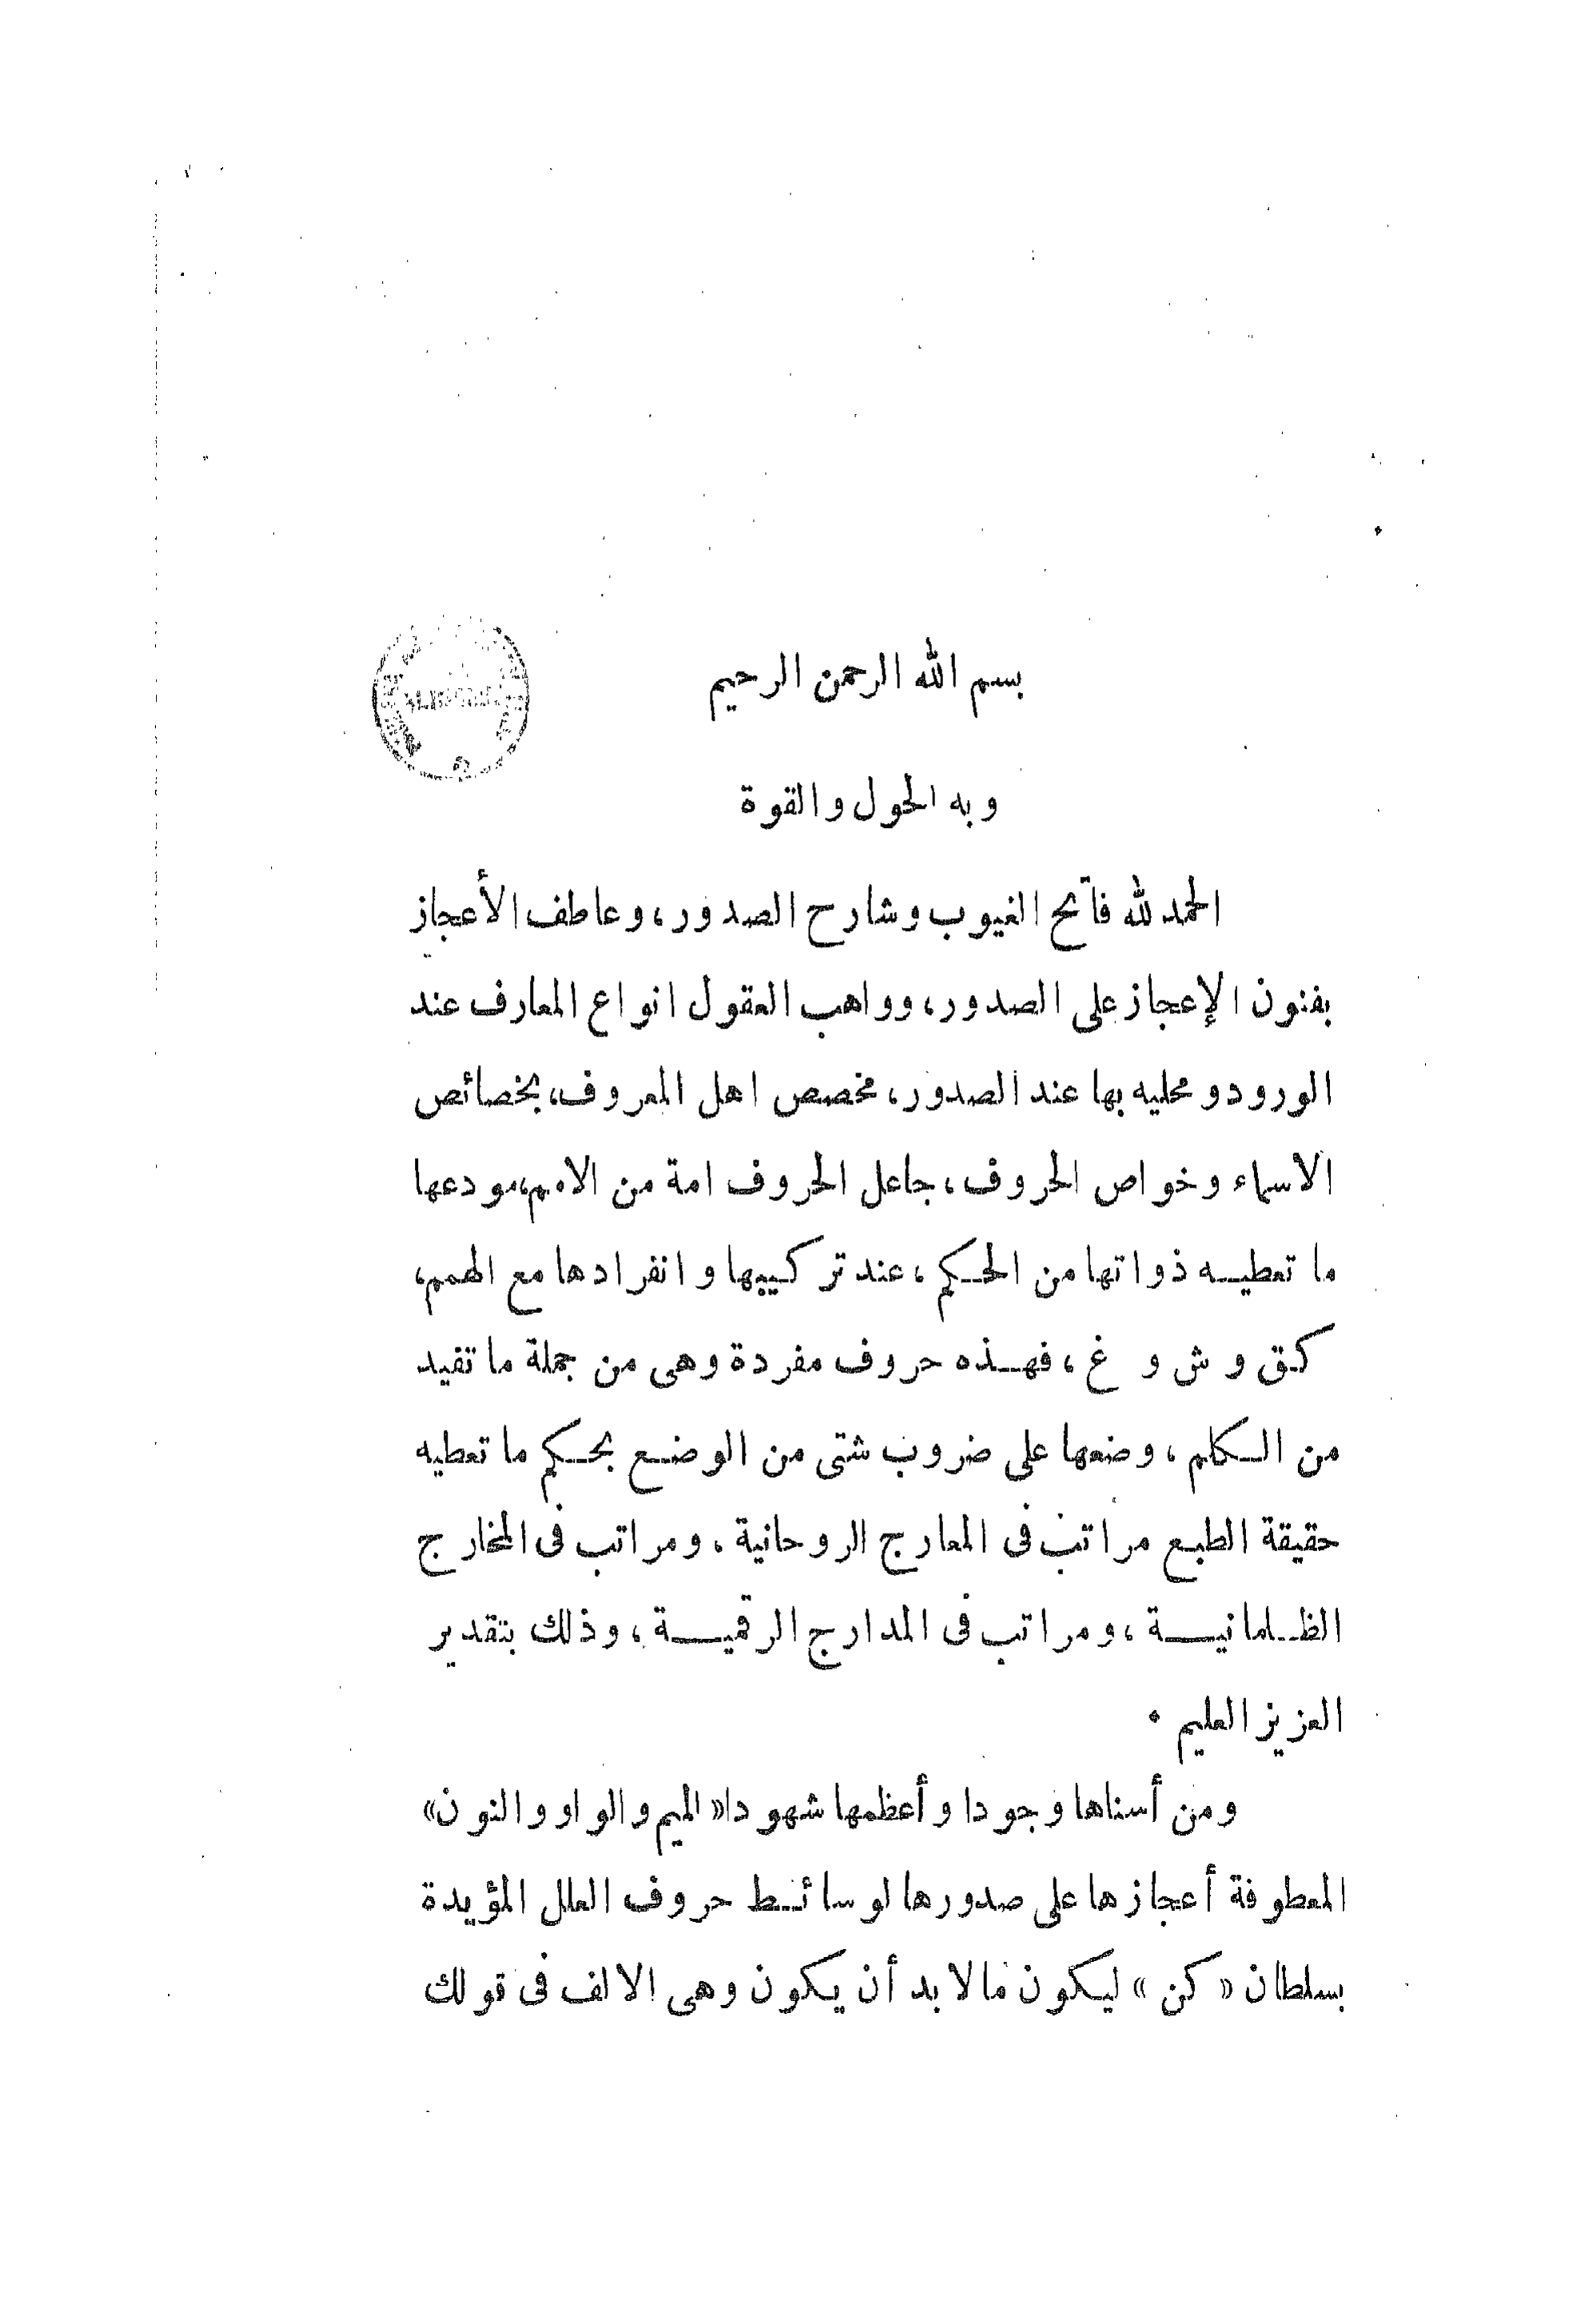 بسم الله الرحمن الرحيم
وبه الحول والقوة
الحمد لله فاتح الغيوب وشارح الصدور، وعاطف الأعجاز
بفنون الإعجاز على الصدور، وواهب العقول انواع المعارف عند
الورود ومحليه بها عند الصدور، مخصص اهل المعروف، بخصائص
الاسماء وخواص الحروف، جاعل الحروف امة من الامم، مودعها
ما تعطيه ذواتها من الحكم، عند تركيبها وانفرادها مع الهمم،
كق و ش و غ، فهذه حروف مفردة وهى من جملة ما تفيد
من الكلم، وضعها على ضروب شتى من الوضع بحكم ما تعطيه
حقيقة الطبع مراتب فى المعارج الروحانية، ومراتب فى المخارج
الظلمانية، ومراتب فى المدارج الرقمية، وذلك بتقدير
العزيز العليم .
ومن أسناها وجودا وأعظمها شهودا «الميم والواو والنون»
المعطوفة أعجازها على صدورها لوسائط حروف العلل المؤيدة
بسلطان « كن » ليكون مالا بد أن يكون وهى الالف فى قولك